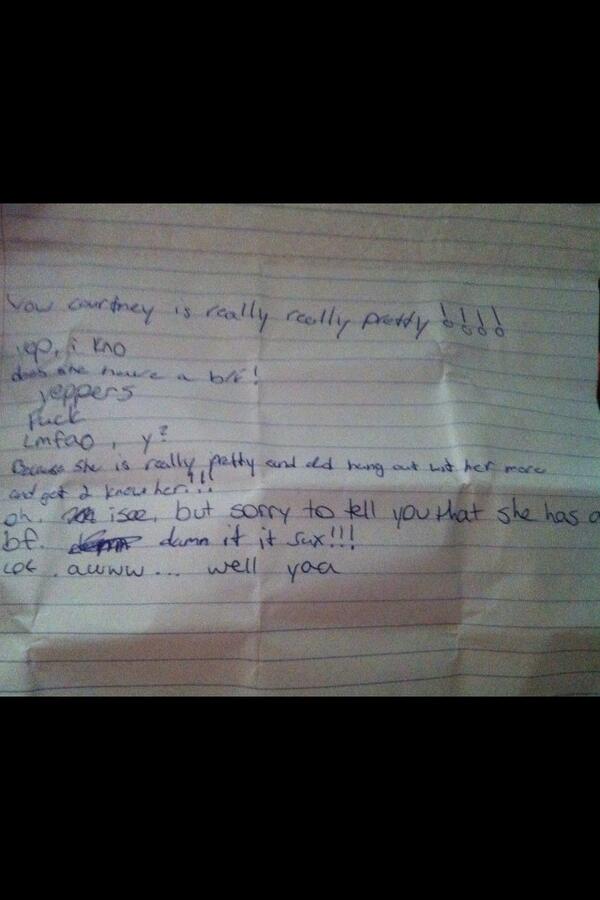 wow courtney is really really pretty !!!!
yep, i kno
does she have a b/f!
yeppers
Fuck
Lmfao, y?
Because she is really pretty and id hang out wit her more
and get 2 know her!!!
oh. isee, but sorry to tell you that she has a
bf. damn it it sux!!!
lol. awww... well yaa